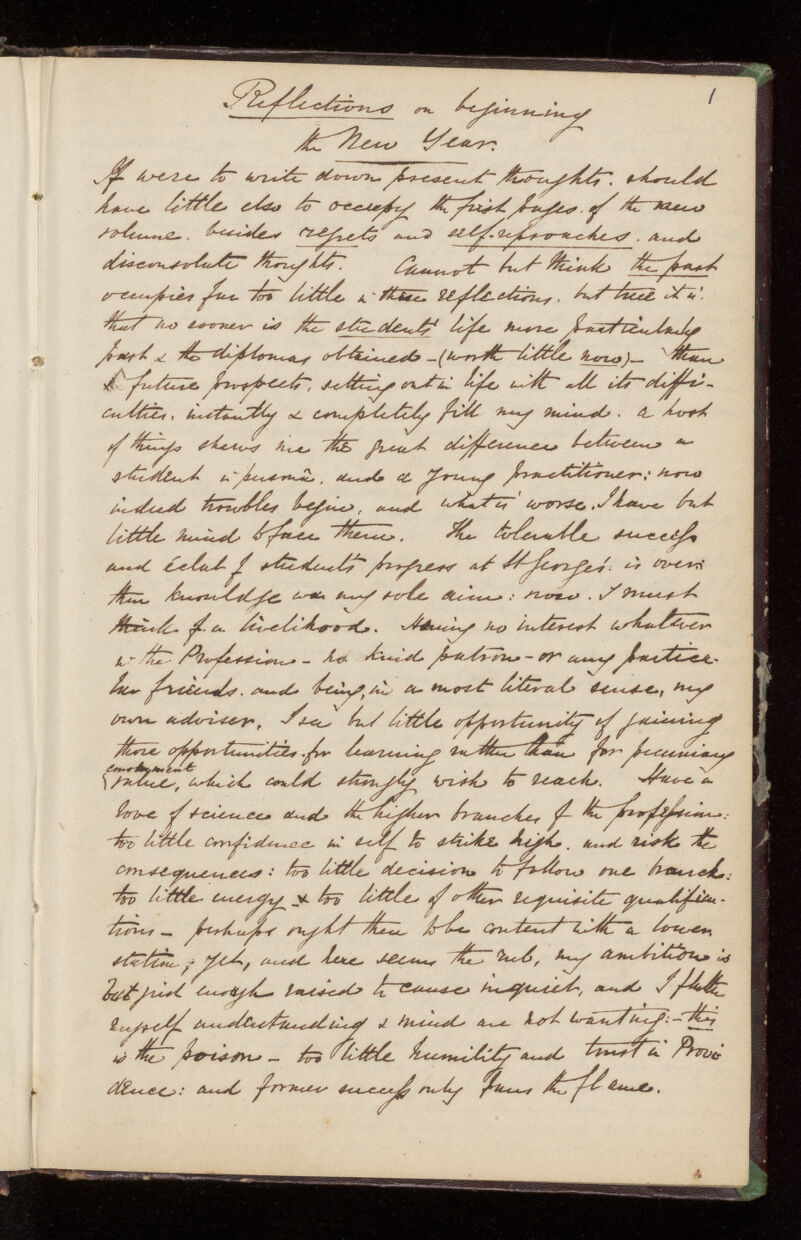 1
Reflections on beginning
the New Year.
If were to write down present thoughts. should
have little else to occupy the first pages. of the new
volume. besides regrets and self-reproaches. and
disconsolate thoughts. Cannot but think the past
occupies far too little in these reflections. but true it is.
that no sooner is the students' life more particularly
past & the diplomas obtained - (worth little now) - than
future prospects. setting out in life with all its diffi-
culties. instantly & completely fill my mind. a host
of things shews me the great difference between a
student and a young practitioner: now
indeed troubles begin, and what is worse. I have but
little mind to face them. The tolerable success
and éclat of student's progress at St George's: is over:
then knowledge was my sole aim: now. I must
think of a livelihood. Having no interest whatever
in the Profession - no kind patron - or any partice-
lar friends. and being, in a most literal sense, my
own adviser. I see but little opportunity of gaining
those opportunities. for learning rather than for pecuniary
emolument
value, which could strongly wish to reach. Have a
love of science and the higher branches of the profession:
too little confidence in self to strike high. and risk the
consequences: too little decision to follow one branch:
too little energy & too little of other requisite qualifica-
tions - perhaps ought then to be content with a lower
station; yet, and here seems the rub, my ambition is
but just enough raised to cause inquiet, and I flatter
myself understanding & mind are not wanting: - this
is the poison - too little humility and trust in Provi
dence: and former success only fans the flame.